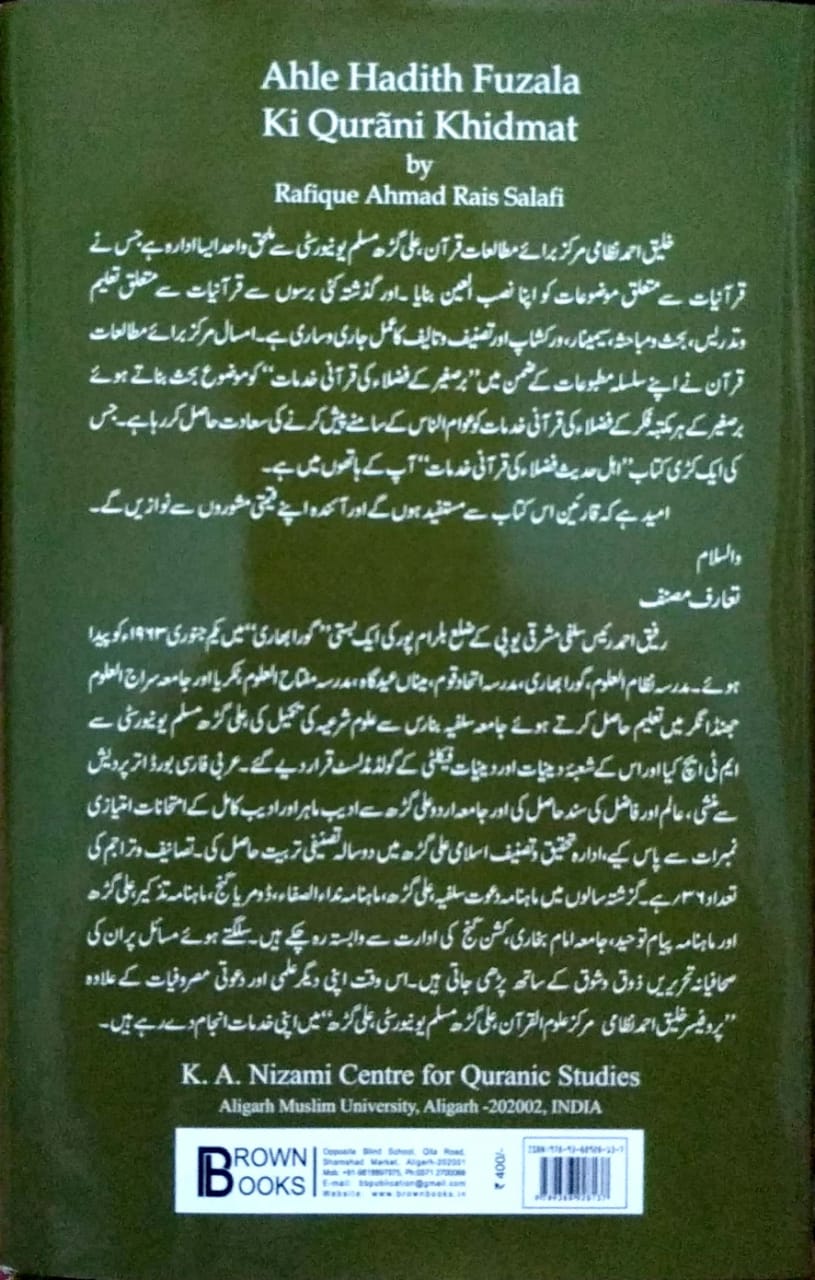 Ahle Hadith Fuzala
Ki Qurãni Khidmat
by
Rafique Ahmad Rais Salafi
خلیق احمد نظامی مرکز برائے مطالعات قرآن، علی گڑھ مسلم یونیورسٹی سے ملحق واحد ایسا ادارہ ہے جس نے
قرآنیات سے متعلق موضوعات کو اپنا نصب العین بنایا ۔ اور گذشتہ کئی برسوں سے قرآنیات سے متعلق تعلیم
وتدریس، بحث ومباحثہ، سیمینار، ورکشاپ اور تصنیف وتالیف کا عمل جاری وساری ہے۔ امسال مرکز برائے مطالعات
قرآن نے اپنے سلسلہ مطبوعات کے ضمن میں ”برصغیر کے فضلاء کی قرآنی خدمات“ کو موضوع بحث بناتے ہوئے
برصغیر کے ہر مکتبہ فکر کے فضلاء کی قرآنی خدمات کو عوام الناس کے سامنے پیش کرنے کی سعادت حاصل کر رہا ہے۔ جس
کی ایک کڑی کتاب ”اہل حدیث فضلاء کی قرآنی خدمات“ آپ کے ہاتھوں میں ہے۔
امید ہے کہ قارئین اس کتاب سے مستفید ہوں گے اور آئندہ اپنے قیمتی مشوروں سے نوازیں گے۔
والسلام
تعارف مصنف
رفیق احمد رئیس سلفی مشرقی یوپی کے ضلع بلرام پور کی ایک بستی ”گورا بھاری“ میں یکم جنوری ۱۹۶۳ء کو پیدا
ہوئے۔ مدرسہ نظام العلوم، گورا بھاری، مدرسہ اتحاد قوم، میناں عیدگاہ، مدرسہ مفتاح العلوم ٹکریا اور جامعہ سراج العلوم
جھنڈا نگر میں تعلیم حاصل کرتے ہوئے جامعہ سلفیہ بنارس سے علوم شرعیہ کی تکمیل کی، علی گڑھ مسلم یونیورسٹی سے
ایم ٹی ایچ کیا اور اس کے شعبۂ دینیات اور دینیات فیکلٹی کے گولڈ مڈلسٹ قرار دیے گئے۔ عربی فارسی بورڈ اتر پردیش
سے منشی، عالم اور فاضل کی سند حاصل کی اور جامعہ اردو علی گڑھ سے ادیب ماہر اور ادیب کامل کے امتحانات امتیازی
نمبرات سے پاس کیے، ادارہ تحقیق و تصنیف اسلامی علی گڑھ میں دو سالہ تصنیفی تربیت حاصل کی۔ تصانیف وتراجم کی
تعداد ۳۶؍ ہے۔ گزشتہ سالوں میں ماہنامہ دعوت سلفیہ، علی گڑھ، ماہنامہ نداء الصفاء، ڈومریا گنج، ماہنامہ تذکیر، علی گڑھ
اور ماہنامہ پیام توحید، جامعہ امام بخاری، کشن گنج کی ادارت سے وابستہ رہ چکے ہیں۔ سلگتے ہوئے مسائل پر ان کی
صحافیانہ تحریریں ذوق وشوق کے ساتھ پڑھی جاتی ہیں۔ اس وقت اپنی دیگر علمی اور دعوتی مصروفیات کے علاوہ
”پروفیسر خلیق احمد نظامی مرکز علوم القرآن، علی گڑھ مسلم یونیورسٹی، علی گڑھ“ میں اپنی خدمات انجام دے رہے ہیں۔
K. A. Nizami Centre for Quranic Studies
Aligarh Muslim University, Aligarh -202002, INDIA
BROWN
BOOKS
Opposite Blind School, Qila Road,
Shamshad Market, Aligarh-202001
E-mail: bbpublication@gmail.com
Website: www.brownbooks.in
₹ 400/-